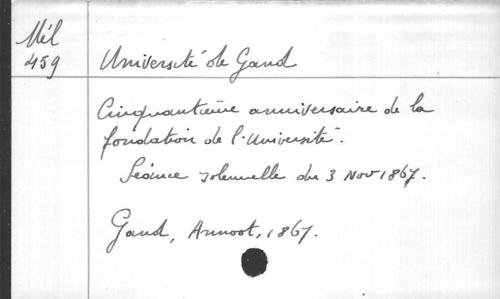 Mél
459
Université de Gand
Cinquantième anniversaire de la
fondation de l'Université.
Séance solennelle du 3 Nov 1867.
Gand, Annoot, 1867.